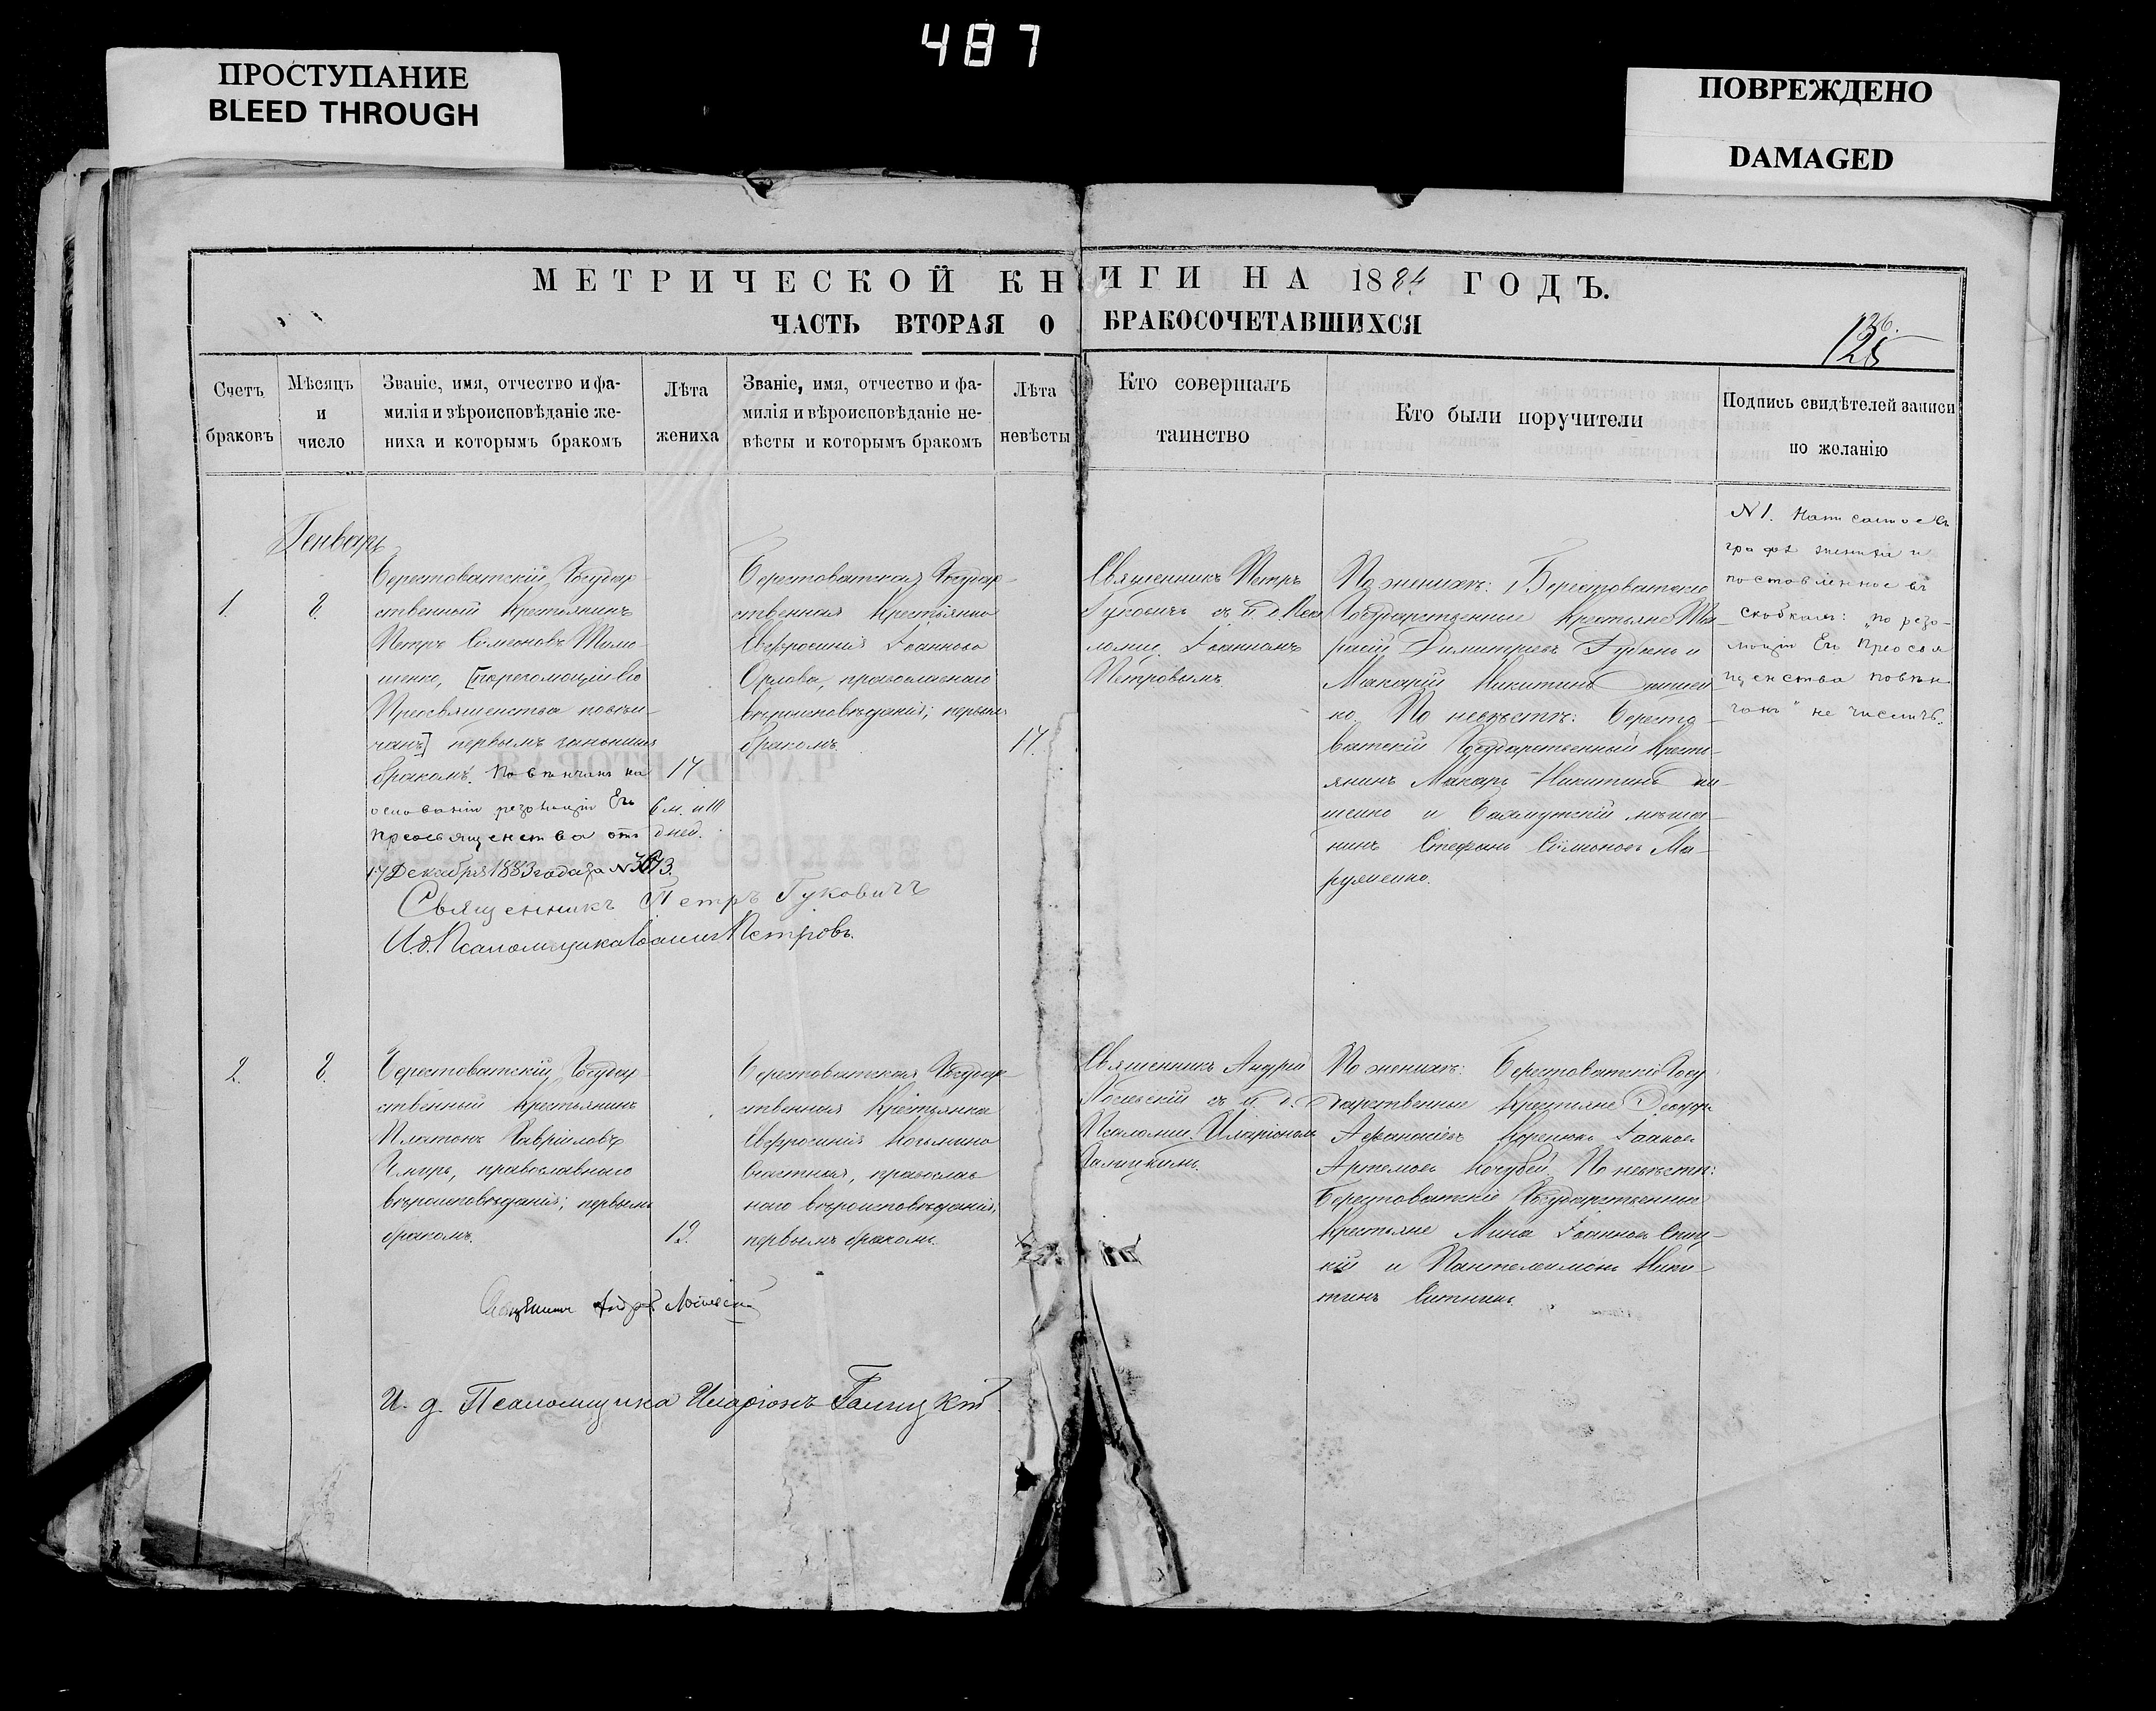 487
ПРОСТУПАНИЕ
BLEED THROUGH
ПОВРЕЖДЕНО
DAMAGED
МЕТРИЧЕСКОЙ КНИГИ НА 1884 ГОДЪ.
ЧАСТЬ ВТОРАЯ О БРАКОСОЧЕТАВШИХСЯ
126.
125
Счетъ
браковъ
Мѣсяцъ
и
число
Званіе, имя, отчество и фа-
милія и вѣроисповѣданіе же-
ниха и которымъ бракомъ
Лѣта
жениха
Званіе, имя, отчество и фа-
милія и вѣроисповѣданіе не-
вѣсты и которымъ бракомъ
Лѣта
невѣсты
Кто совершалъ
таинство
Кто были поручители
Подпись свидѣтелей записи
по желанію
Генварь
1.
8.
Берестоватскій Государ-
ственный Крестьянинъ
Петръ Симеоновъ Тимо-
шенко, [по резолюціи Его
Преосвященства повѣн-
чанъ] первымъ законнымъ
бракомъ. Повѣнчанъ на
основаніи резолюціи Его
Преосвященства отъ
17 Декабря 1883 года за №
17
6 м. и 10
дней.
Берестоватская Государ-
ственная Крестьянка
Евфросинія Іоаннова
Орлова, православнаго
вѣроисповѣданія; первымъ
бракомъ.
17.
Священникъ Петръ
Гуковичъ съ и. д. Псал
ломщ. Іоанномъ
Петровымъ.
По женихѣ: Берестоватскіе
Государственные Крестьяне
Димитріевъ и
Макарій Никитинъ
но. По невѣстѣ: Бересто-
ватскій Государственный Кресть-
янинъ Макаръ Никитинъ
и Бахмутскій мѣща-
нинъ Стефанъ Симеоновъ Ма-
№ 1. Написанное въ
графѣ жениха и
поставленное въ
скобкахъ: „по резо-
люціи Его Преосвя
щенства повѣн
чанъ" не числить.
Священникъ Петръ Гуковичъ
И.д. Псаломщика Іоаннъ Петровъ.
2.
8.
Берестоватскій Государ-
ственный Крестьянинъ
Платонъ Гавріиловъ
православнаго
вѣроисповѣданія; первымъ
бракомъ.
19.
Берестоватская Государ-
ственная Крестьянка
Евфросинія Козьмина
православ
наго вѣроисповѣданія;
первымъ бракомъ.
Священникъ Андрей
съ и. д.
Псаломщ. Иларіономъ
По женихѣ: Берестоватскіе Госу
дарственные Крестьяне
Аѳанасіевъ
Артемовъ Кочубей. По невѣстѣ:
Берестоватскіе Государственные
Крестьяне Мина Іоанновъ
кій и Пантелеимонъ Ники-
тинъ
Священникъ Андрей
И. д. Псаломщика Иларіонъ Галицкій